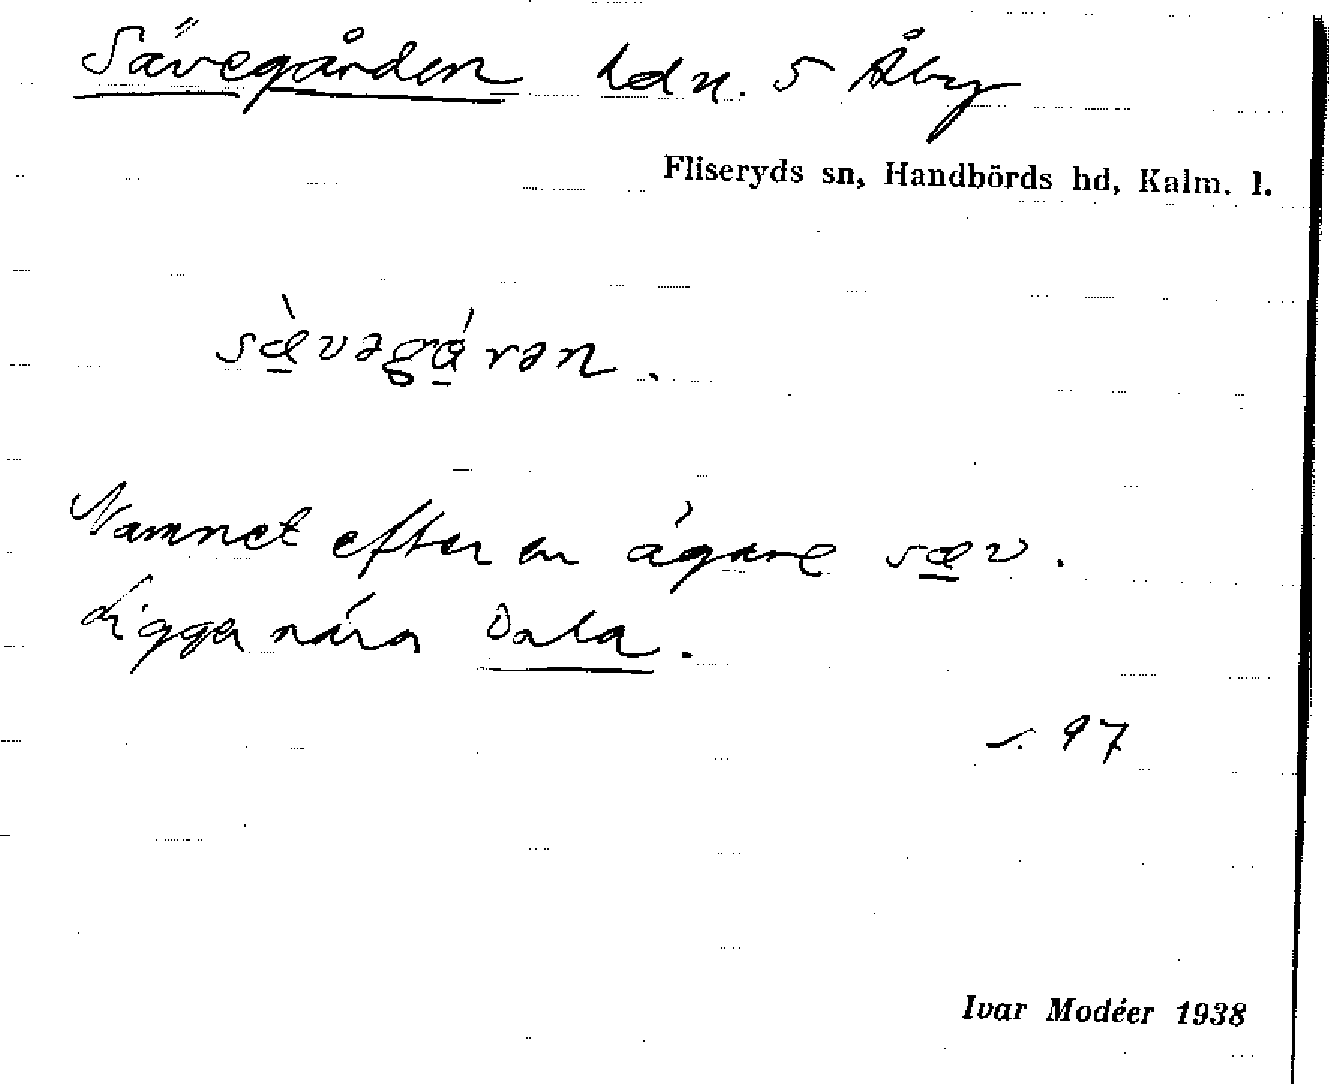 Sävegården hdn. 5 Åby
Fliseryds sn, Handbörds hd, Kalm. l.
sæ̀vəgɑ́rən.
Namnet efter en ägare sæv.
Ligger nära Dala.
s. 97
Ivar Modéer 1938